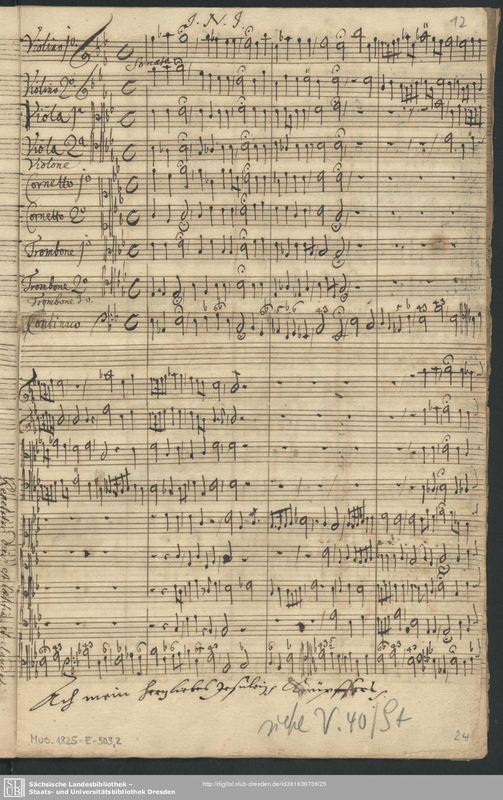 J. N. J.
12
Violino 1o
Sonata
Violino 2o
Viola 1a
Viola 2a
Violone
Cornetto 1o
Cornetto 2o
Trombone 1o
Trombone 2o
Trombone 3o.
Continuo
Ach mein herzliebes Jesulein
siehe V. 40/St
Mus. 1825-E-503,2
24
SLUB
Sächsische Landesbibliothek –
Staats- und Universitätsbibliothek Dresden
http://digital.slub-dresden.de/id381639738/25